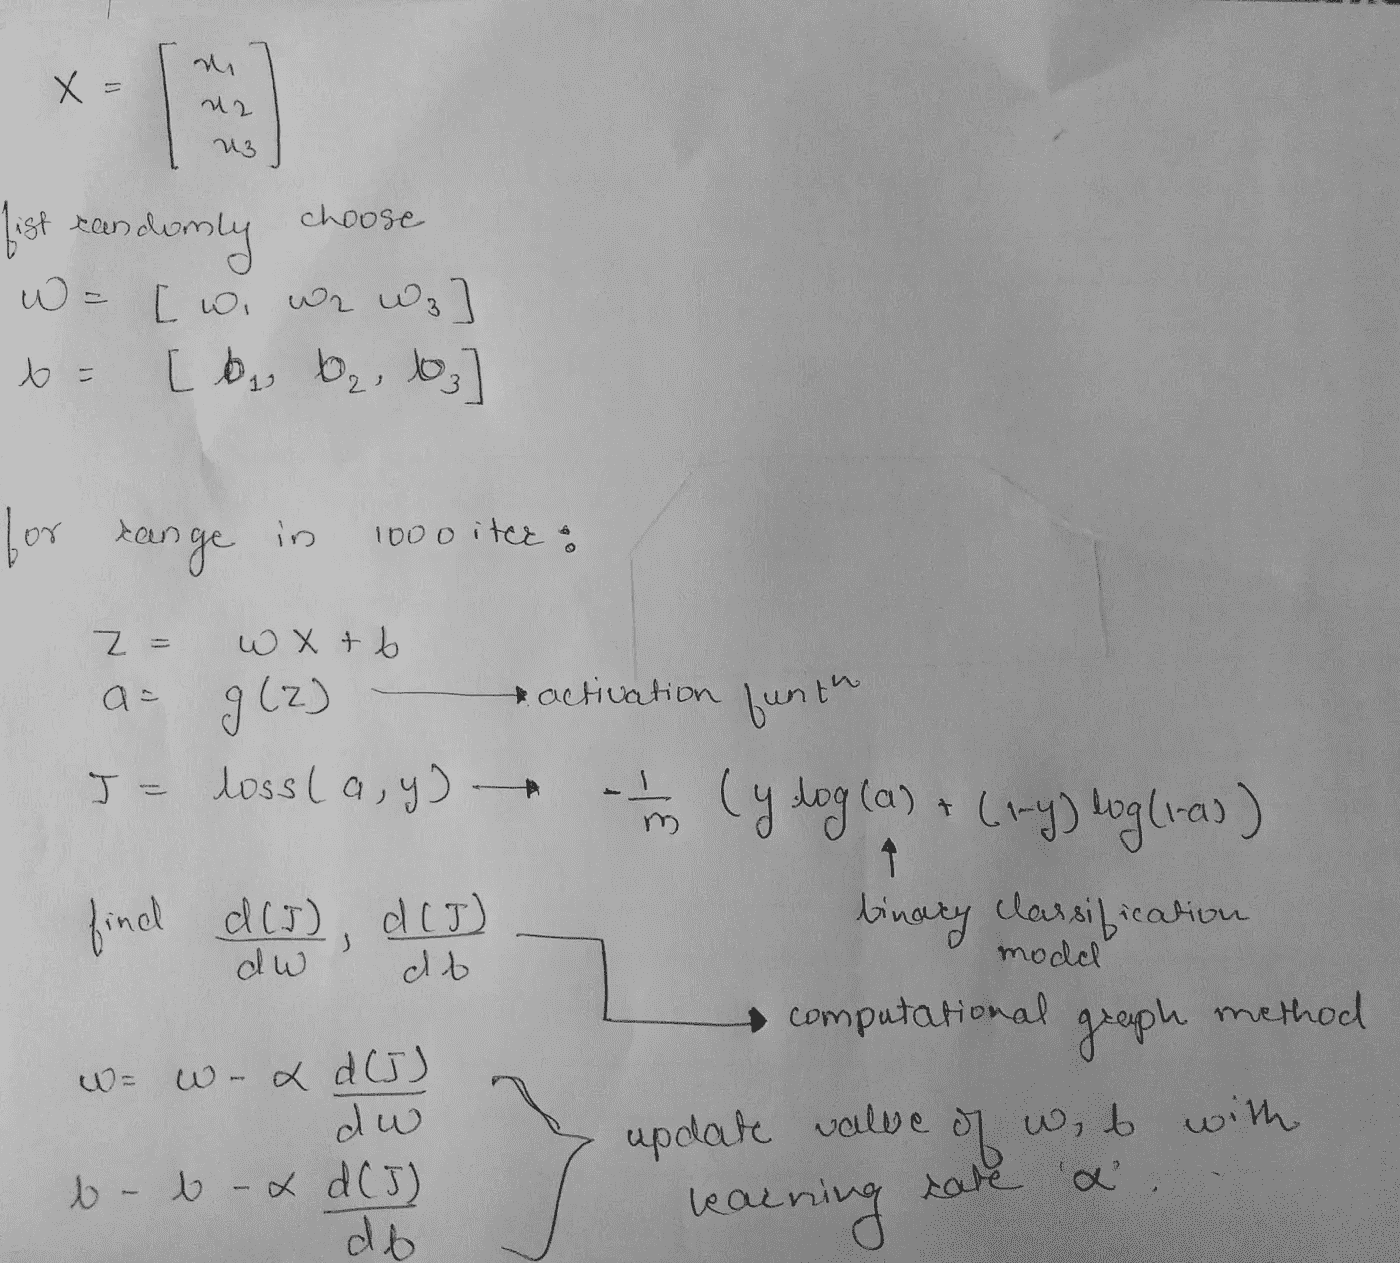 X = [ x1
x2
x3 ]
fist randomly choose
w = [ w1 w2 w3 ]
b = [ b1, b2, b3 ]
for range in 1000 iter :
z = wX + b
a = g(z) → activation funtn
J = loss(a,y) → -1/m (y log(a) + (1-y) log(1-a))
↑
binary classification
model
find d(J)/dw , d(J)/db → computational graph method
w = w - α d(J)/dw
b - b - α d(J)/db
update value of w, b with
learning rate 'α'.